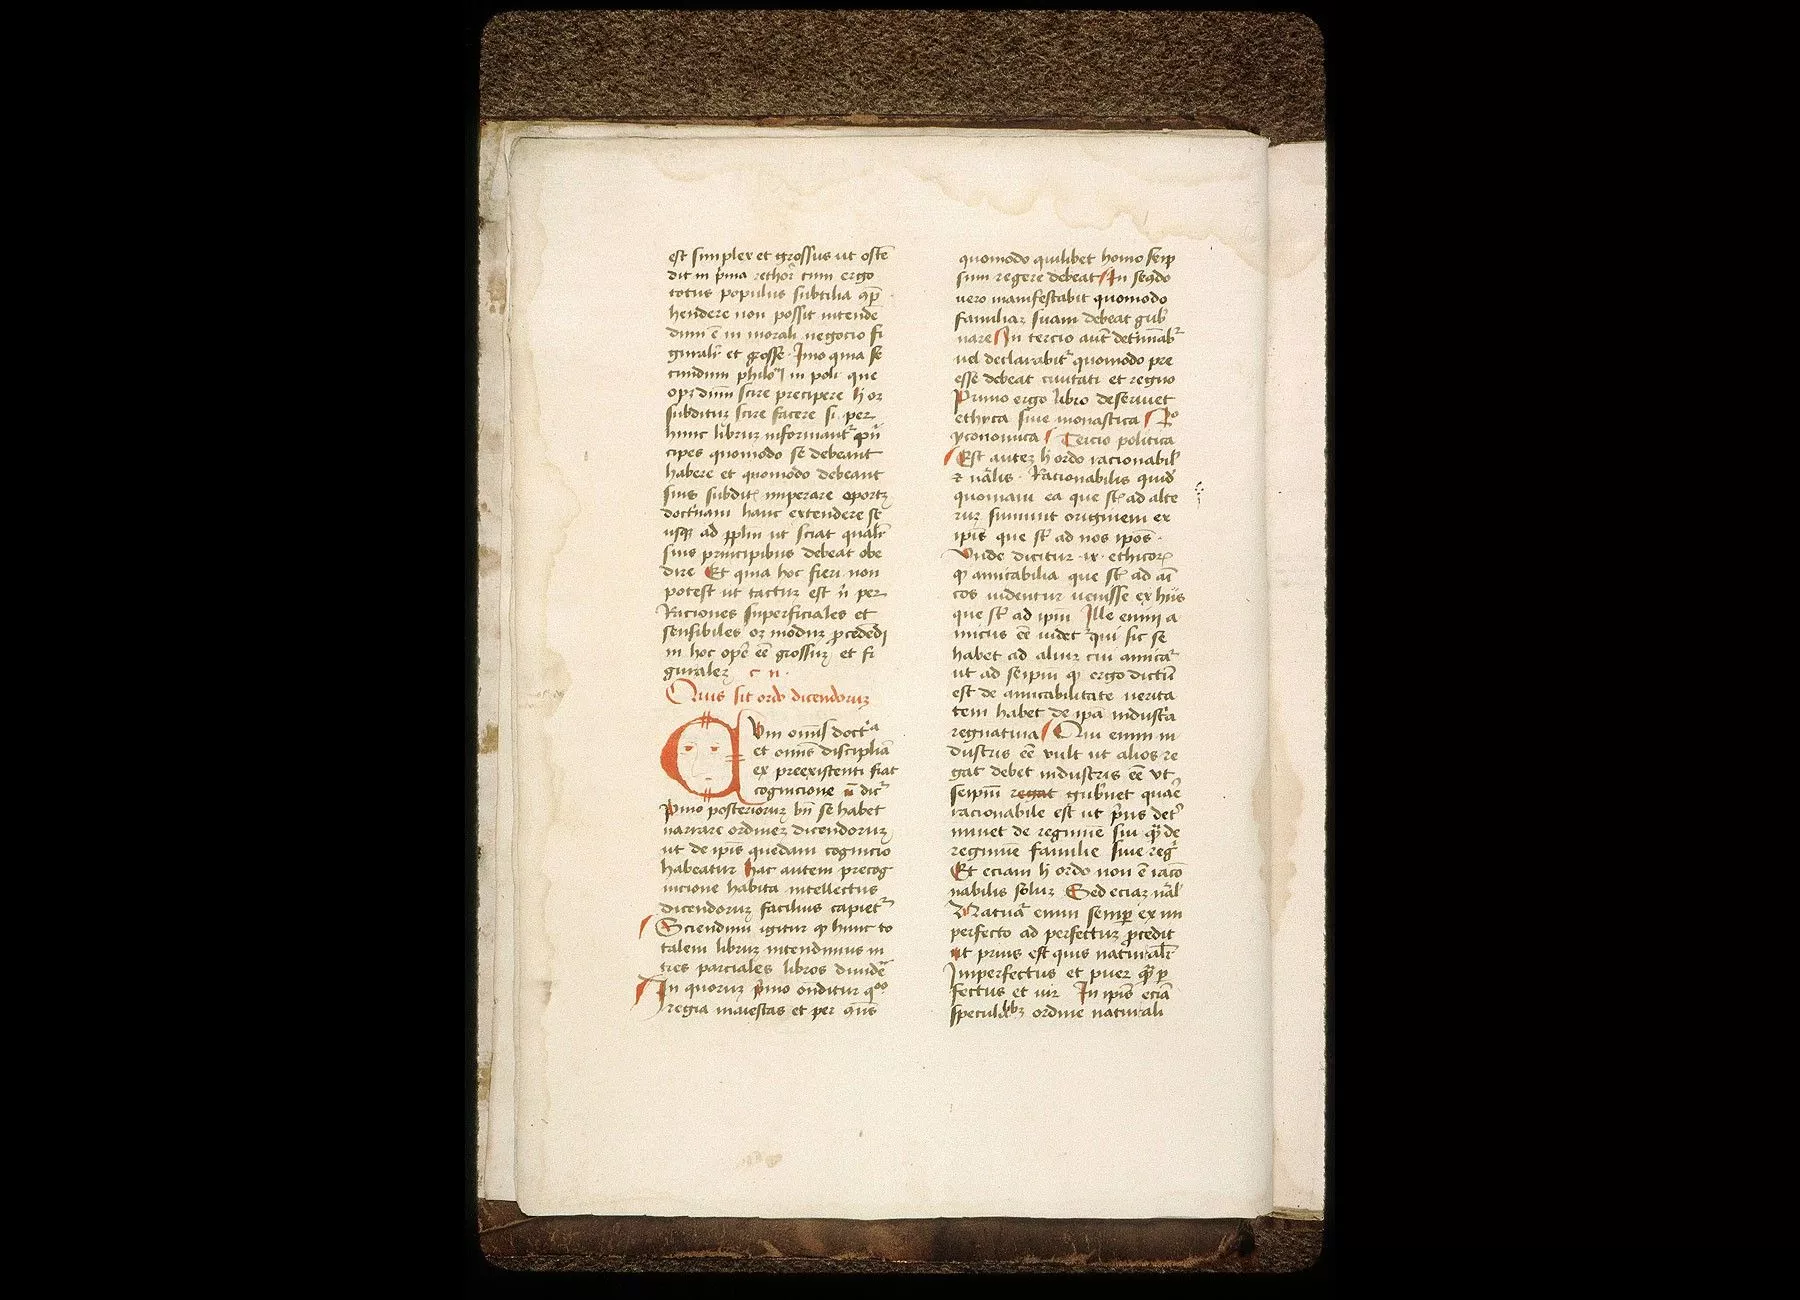 est simplex et grossus ut oste
dit in p̄ma rethor̄ cum ergo
totus populus subtilia ꝯp̄
hendere non possit incede
dum ē in morali negocio fi
gurałr et grosse · Imo quia se
cundum philoꝰ in poli que
opꝫ dūm scire precipere h̄ oꝫ
subditum scire facere si per
hunc librum informant᷑ pͥn
cipes quomodo se debeant
habere et quomodo debeant
suis subdit᷑ imperare oportꝫ
doct᷑nam hanc extendere
usqꝫ ad ppłm ut sciat quałr
suis principibus debeat obe
dire Et quia hoc fieri non
potest ut tactum est n̄ per
Raciones superficiales et
sensibiles oꝫ modum ꝓcededī
in hoc opē eē grossum et fi
guralem c ii ·
Quis sit ordo dicendorum
Cum omīs doct᷑a
et omīs discipliā
ex preexistenti fiat
cognicione ū dic᷑
pͥmo posteriorum bn̄ se habet
narrare ordinem dicendorum
ut de ip̄is quedam cognicio
habeatur hac autem precog
nicione habita intellectus
dicendorum facilius capiet᷑
Sciendum igitur ꝙ hunc to
talem librum intendimus in
tres parciales libros diuidē
In quorum pͥmo ōnditur qͦͦ
regia maiestas et per ꝯn̄s
quomodo quilibet homo seip
sum regere debeat In secͦdo
uero manifestabit quomodo
familiam suam debeat gub̄
nare In tercio aut̄ det̄minab᷑
uel declarabit᷑ quomodo pre
esse debeat ciuitati et regno
Primo ergo libro deseruiet
ethica siue monastica 2ͦ
yconomica Tercio politica
Est autem h̄ ordo racionabił
⁊ nāłis · Racionabilis quid̄
quoniam ea que st᷑ ad alte
rum sumunt originem ex
ip̄is que st᷑ ad nos ip̄os ·
Vnde dicitur · ix · ethicorꝝ
ꝙ amicabilia que st᷑ ad ami
cos uidentur uenisse ex hiis
que st᷑ ad ip̄m Ille enim a
micus eē uidet᷑ qui sic se
habet ad alium cui amicat᷑
ut ad seip̄m ꝙ ergo dictū
est de amicabilitate uerita
tem habet de ip̄a indust᷑a
regnatiua Qui enim in
dustris eē vult ut alios re
gat debet industris eē vt
seip̄m regat gub̄net quare
racionabile est ut pͥus det᷑
minet de regimīe sui ꝙ̄ de
regimīe familie siue reḡ
Et eciam h̄ ordo non ē raco
nabilis solum Sed eciam nāł
Natuͣ enim semꝑ ex im
perfecto ad perfectum ꝓcedit
ut prius est quis naturałr
Imperfectus et puer ꝙ̄ ꝑ
fectus et uir In ip̄is eciā
speculābꝫ ordine naturali